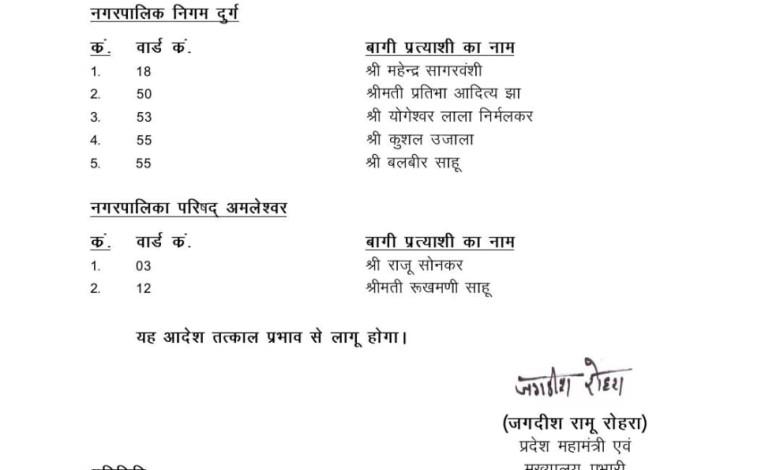 नगरपालिक निगम दुर्ग
कं. वार्ड कं. बागी प्रत्याशी का नाम
1. 18 श्री महेन्द्र सागरवंशी
2. 50 श्रीमती प्रतिभा आदित्य झा
3. 53 श्री योगेश्वर लाला निर्मलकर
4. 55 श्री कुशल उजाला
5. 55 श्री बलबीर साहू
नगरपालिका परिषद् अमलेश्वर
कं. वार्ड कं. बागी प्रत्याशी का नाम
1. 03 श्री राजू सोनकर
2. 12 श्रीमती रूखमणी साहू
यह आदेश तत्काल प्रभाव से लागू होगा।
जगदीश रोहरा
(जगदीश रामू रोहरा)
प्रदेश महामंत्री एवं
मुख्यालय प्रभारी